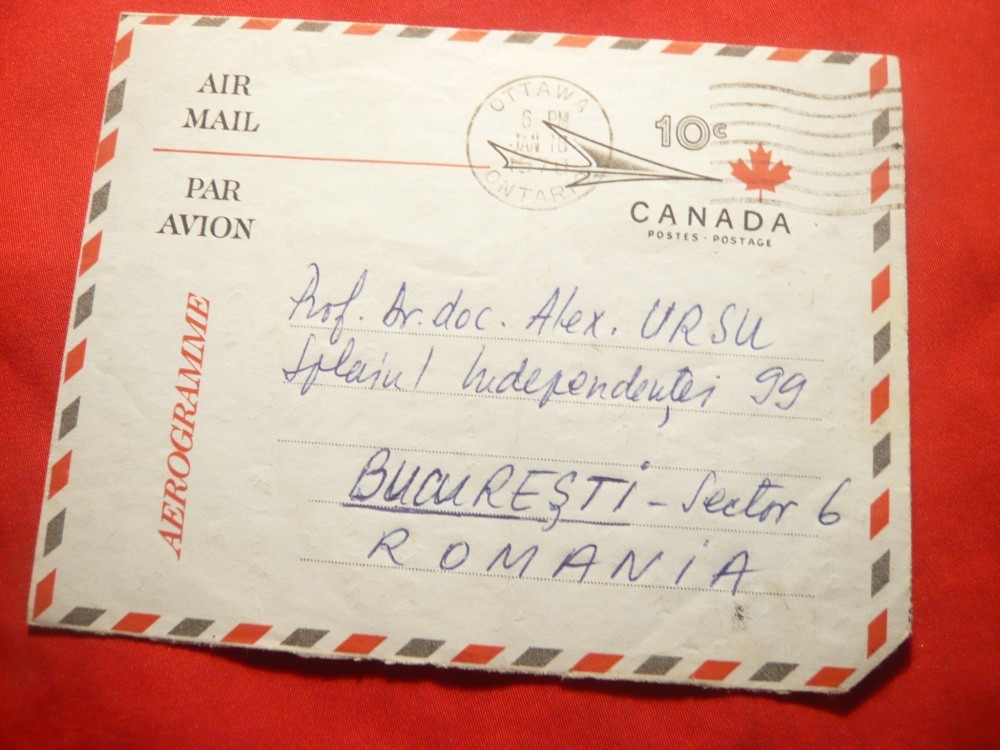 AIR
MAIL
PAR
AVION
AEROGRAMME
OTTAWA
6 PM
JAN
ONTARI
10c
CANADA
POSTES - POSTAGE
Prof. Dr. doc. Alex. URSU
Splaiul Independenţei 99
BUCUREŞTI - Sector 6
ROMANIA